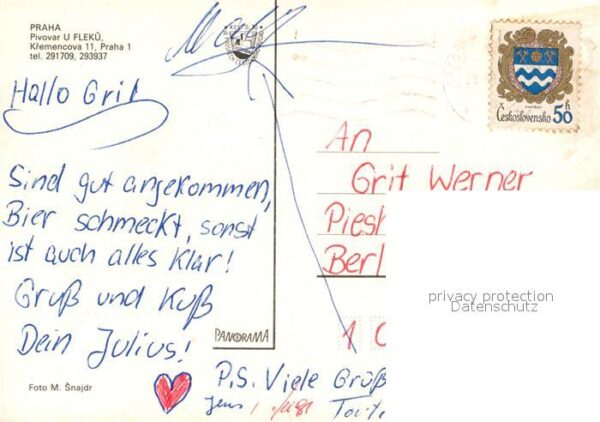 PRAHA
Pivovar U FLEKŮ,
Křemencova 11, Praha 1
tel. 291709, 293937
Hallo Grit
Sind gut angekommen,
Bier schmeckt, sonst
ist auch alles klar!
Gruß und Kuß
Dein Julius!
Foto M. Šnajdr
PANORAMA
Československo 50 h
An
Grit Werner
Piest
Berl
privacy protection
Datenschutz
1
P.S. Viele Grüß
Jens